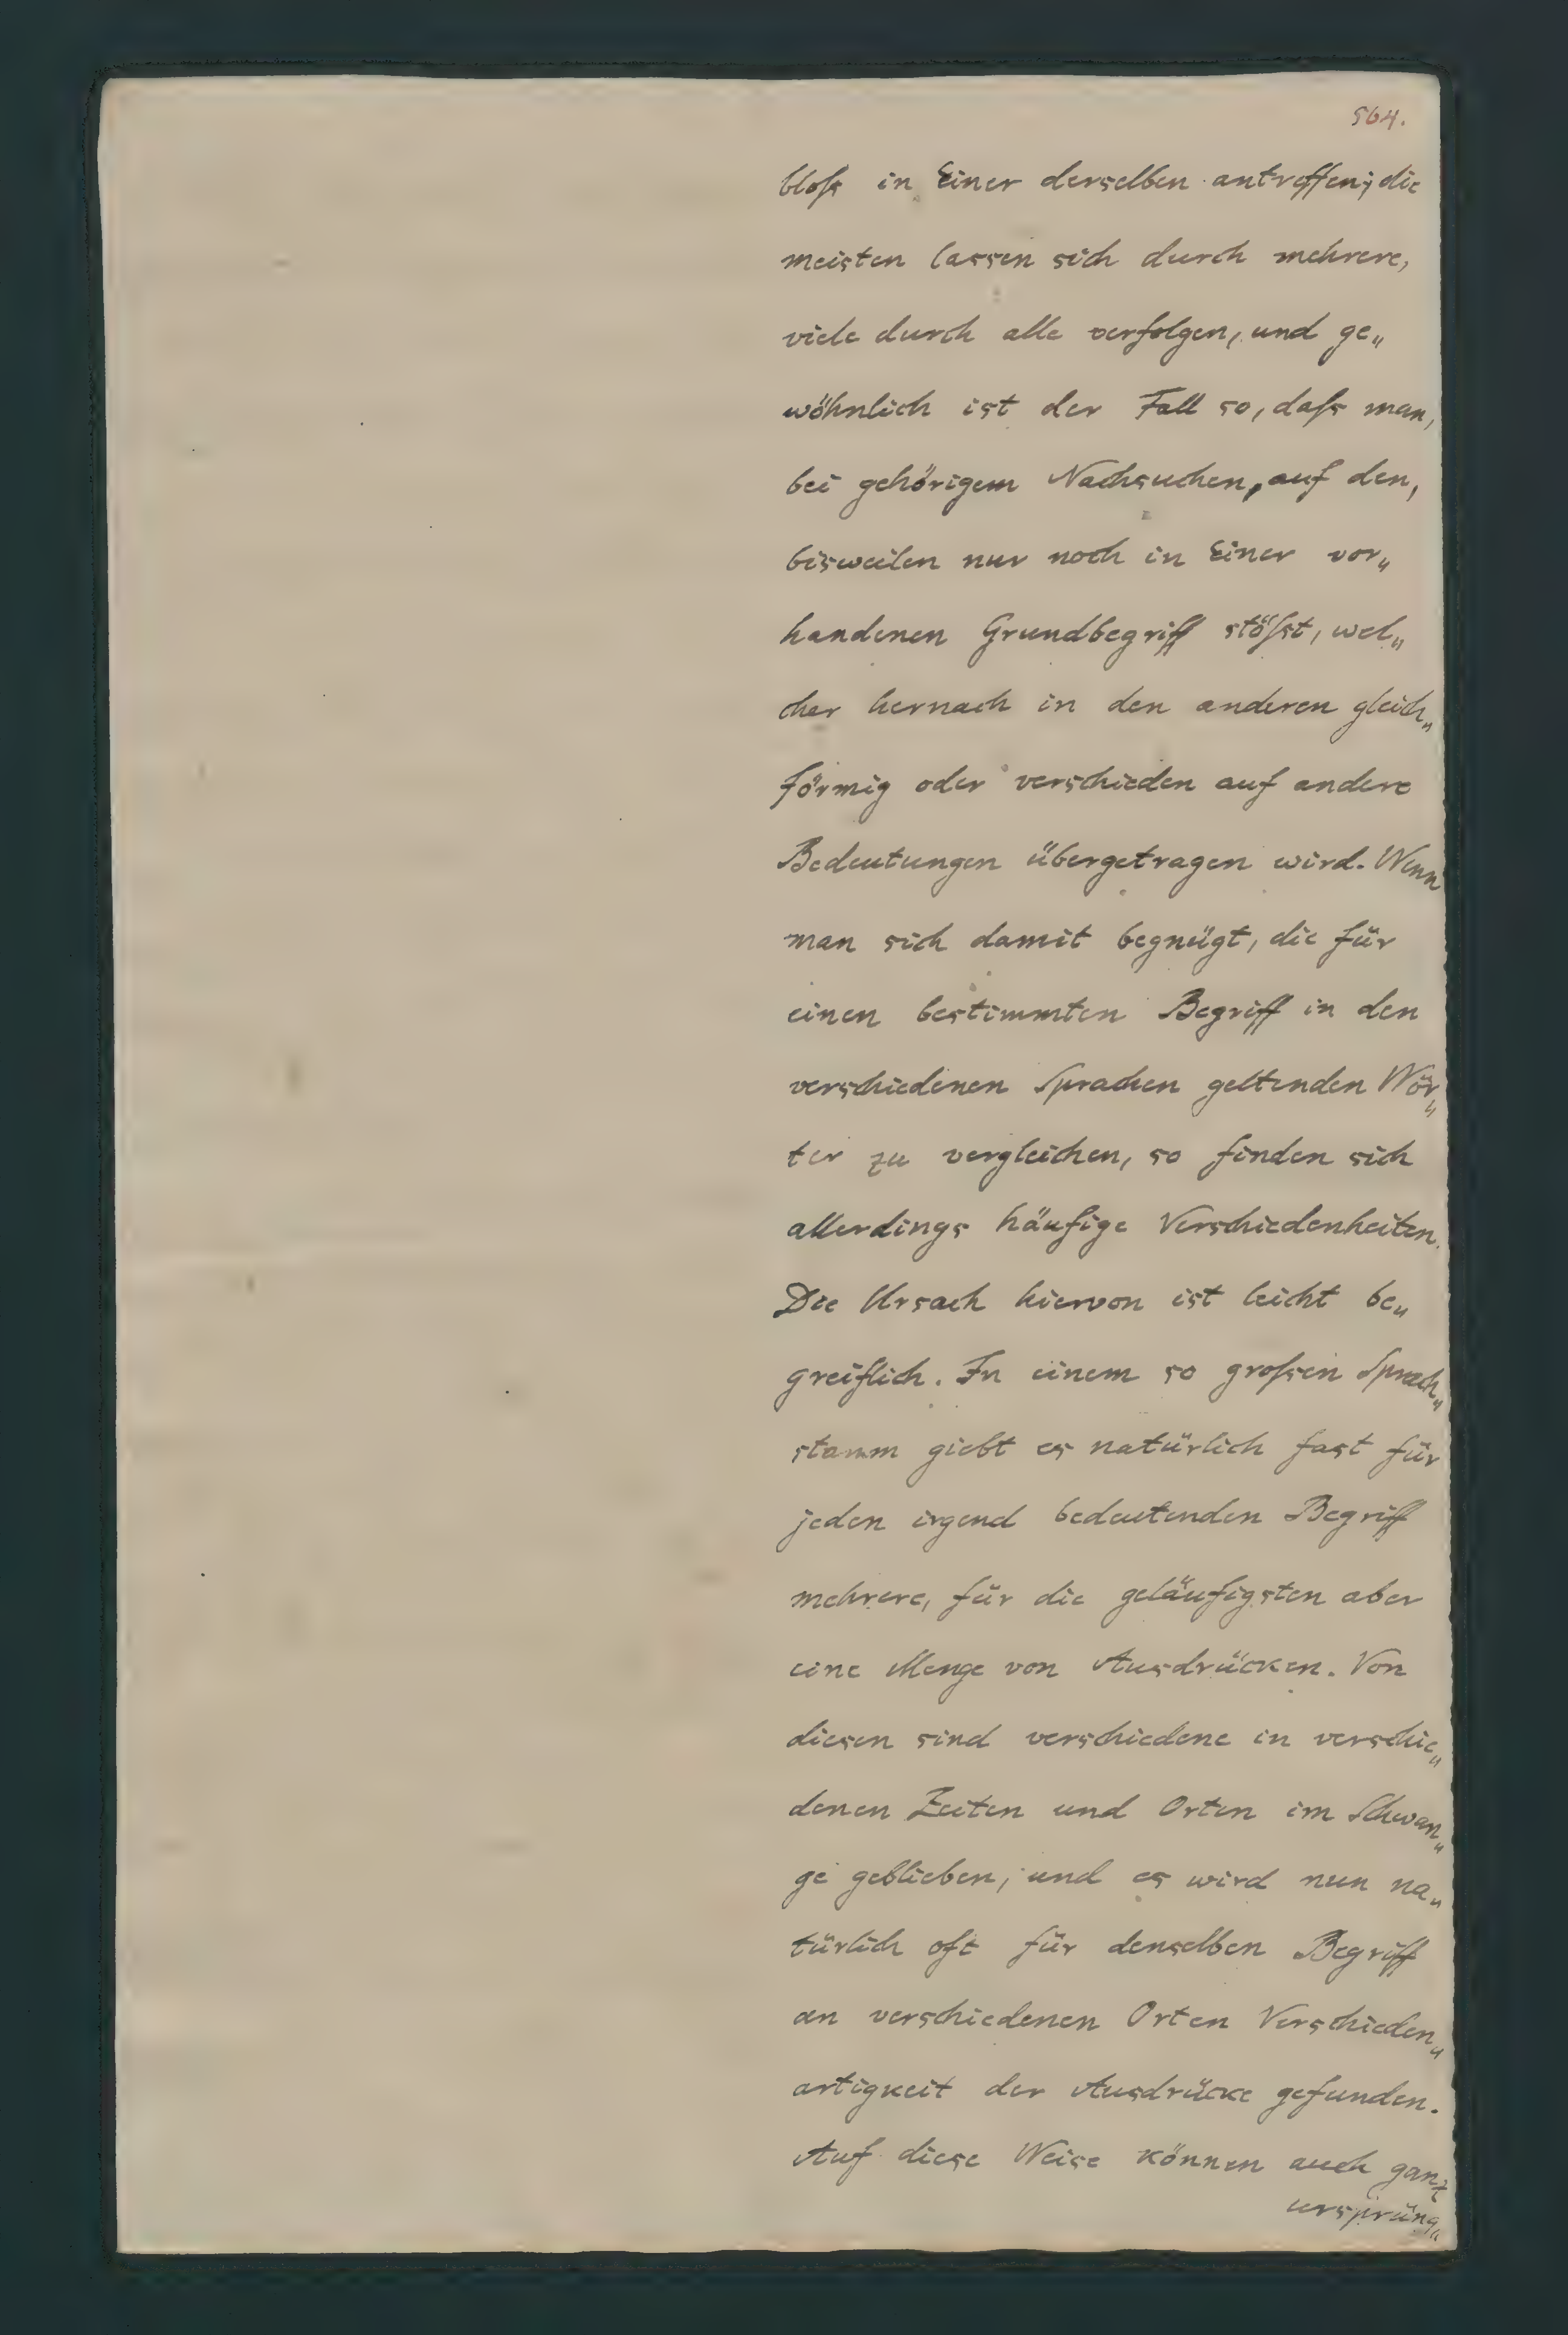 564.
bloſs in Einer derselben antreffen; die
meisten lassen sich durch mehrere,
viele durch alle verfolgen, und ge„
wöhnlich ist der Fall so, daſs man,
bei gehörigem Nachsuchen, auf den,
bisweilen nur noch in Einer vor„
handenen Grundbegriff stöſst, wel„
cher hernach in den anderen gleich„
förmig oder verschieden auf andere
Bedeutungen übergetragen wird. Wenn
man sich damit begnügt, die für
einen bestimmten Begriff in den
verschiedenen Sprachen geltenden Wör„
ter zu vergleichen, so finden sich
allerdings häufige Verschiedenheiten.
Die Ursach hiervon ist leicht be„
greiflich. In einem so groſsen Sprach„
stamm giebt es natürlich fast für
jeden irgend bedeutenden Begriff
mehrere, für die geläufigsten aber
eine Menge von Ausdrücken. Von
diesen sind verschiedene in verschie„
denen Zeiten und Orten im Schwan„
ge geblieben, und es wird nun na„
türlich oft für denselben Begriff
an verschiedenen Orten Verschieden„
artigkeit der Ausdrücke gefunden.
Auf diese Weise können auch ganz
ursprüng„